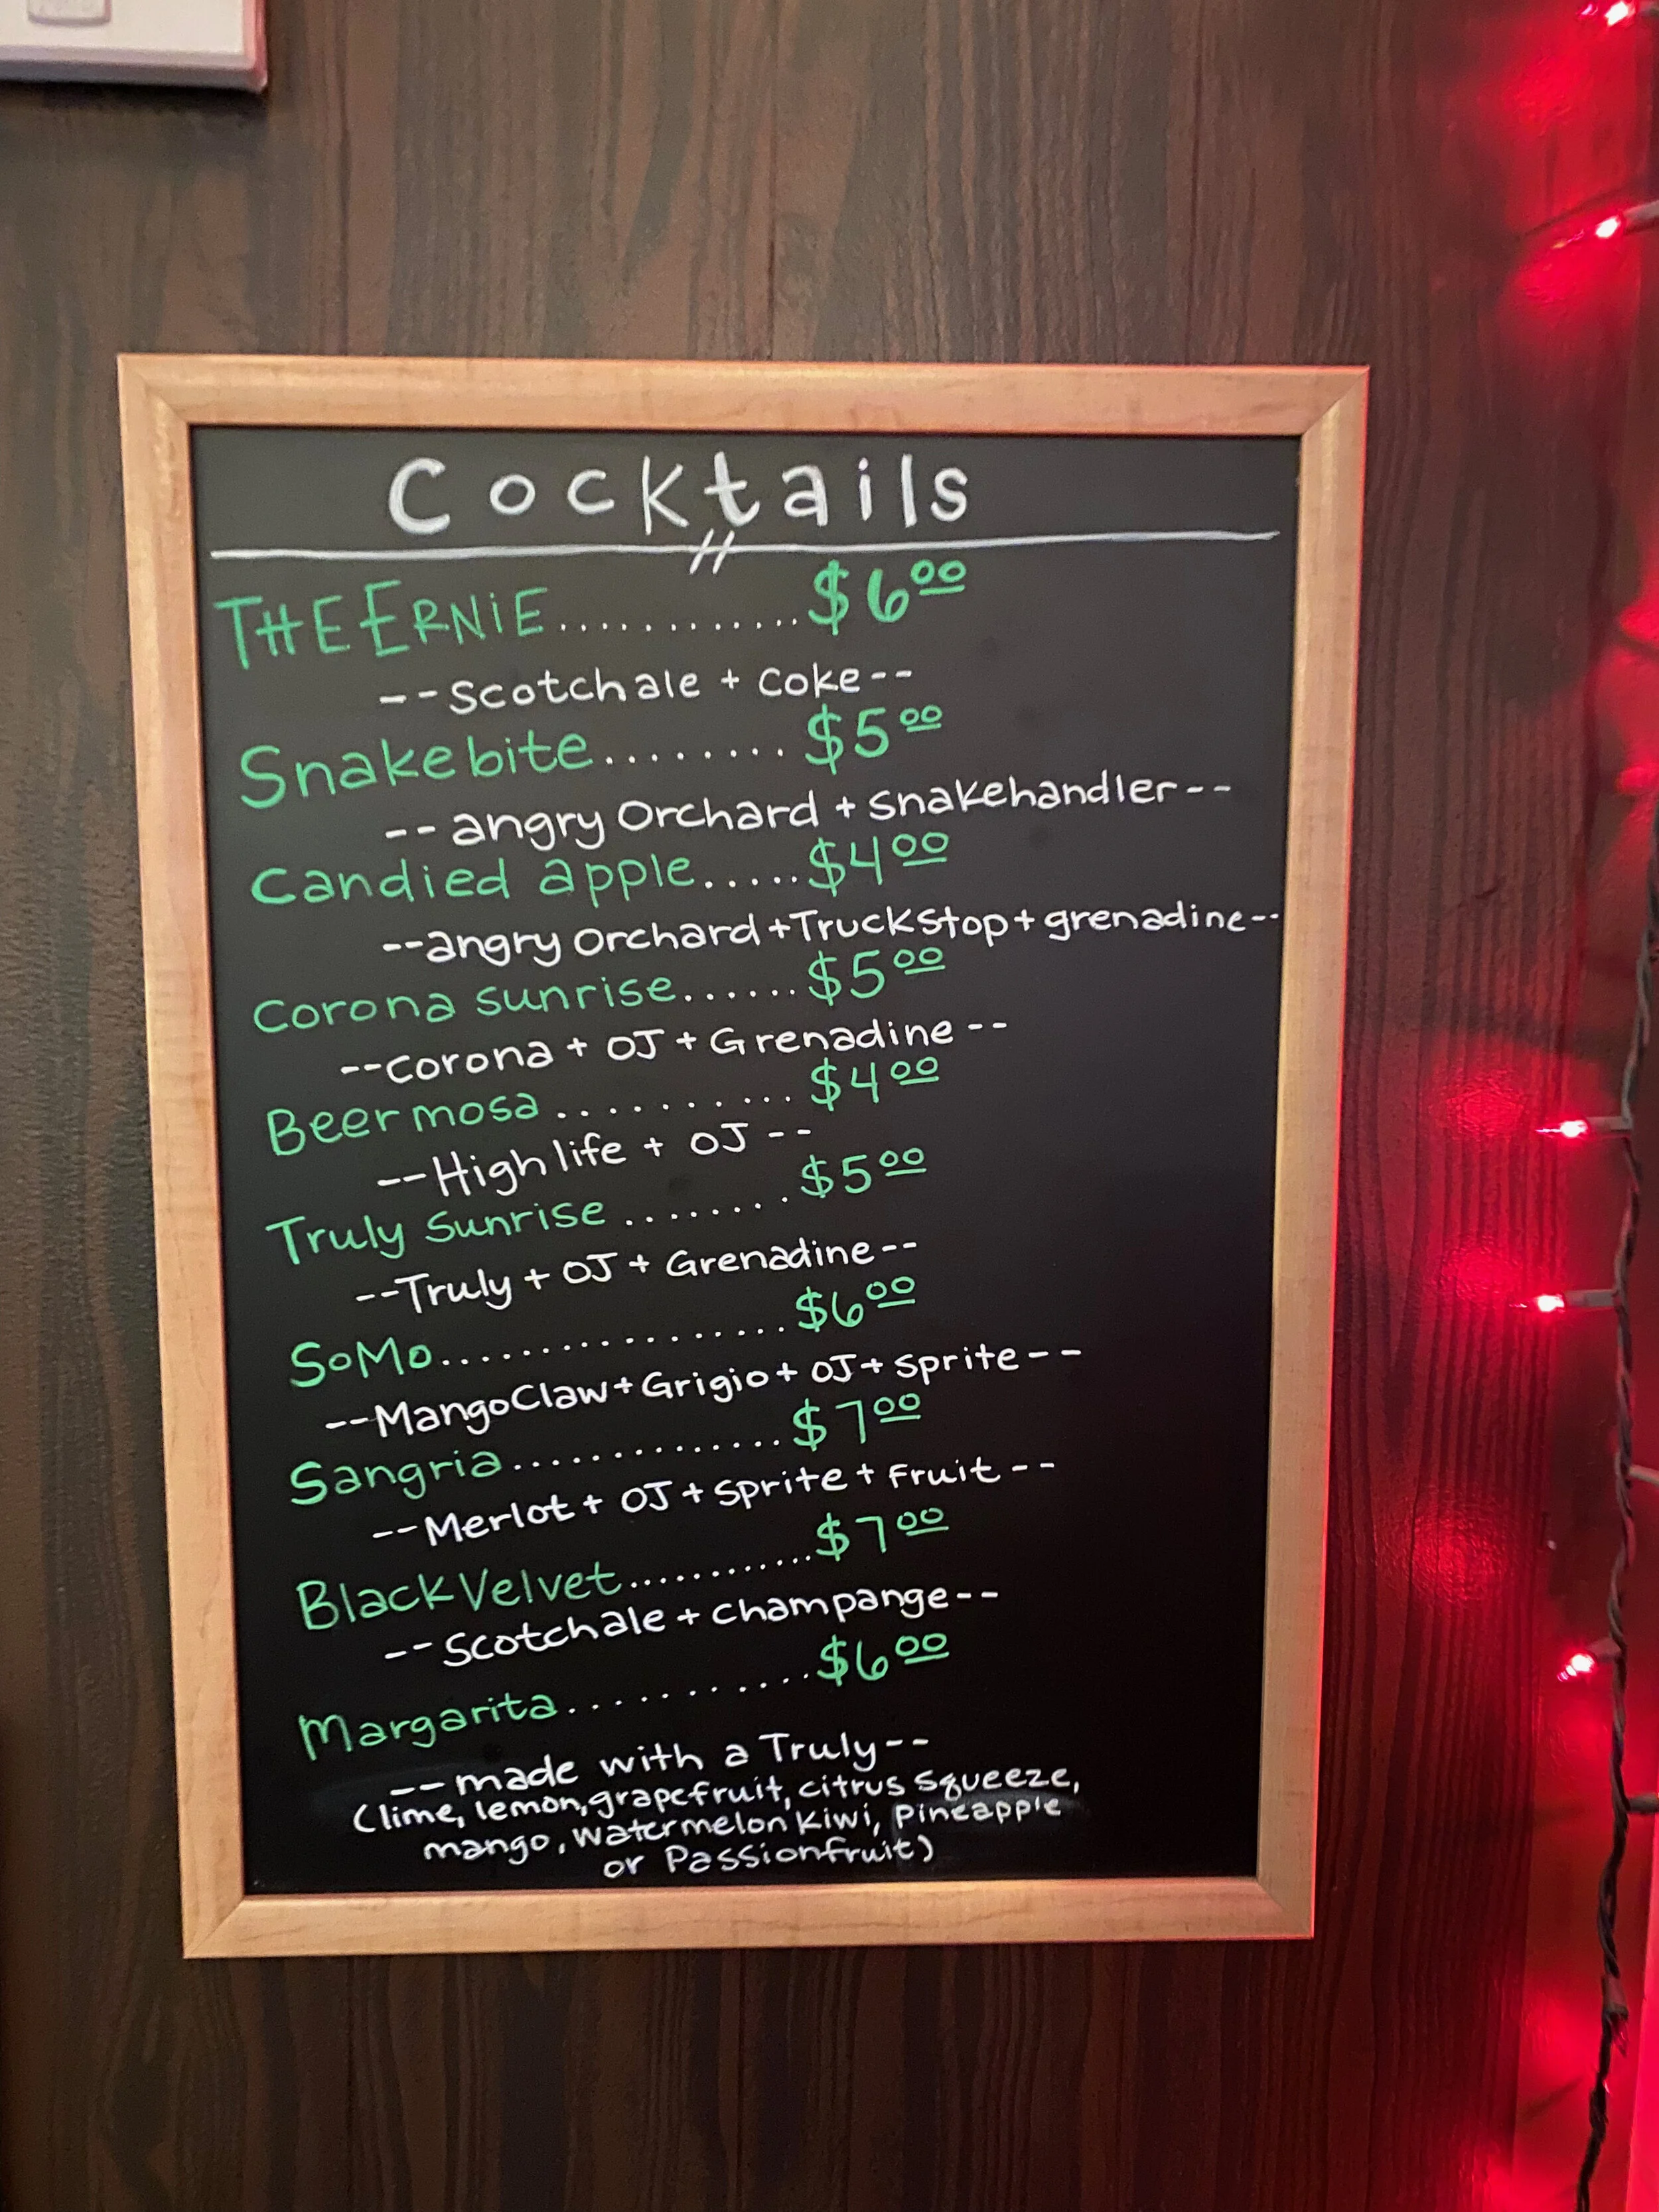 Cocktails
THE ERNiE............$6.00
--Scotchale + Coke--
Snakebite........$5.00
--angry Orchard + Snakehandler--
Candied apple.....$4.00
--angry Orchard+TruckStop+grenadine--
Corona sunrise......$5.00
--corona + OJ + Grenadine--
Beermosa...........$4.00
--High life + OJ--
Truly Sunrise........$5.00
--Truly + OJ + Grenadine--
SoMo..................$6.00
--MangoClaw+Grigio+OJ+Sprite--
Sangria..............$7.00
--Merlot + OJ + Sprite + Fruit--
Black Velvet...........$7.00
--Scotchale + Champange--
Margarita...........$6.00
--made with a Truly--
(lime, lemon, grapefruit, citrus squeeze,
mango, watermelon kiwi, pineapple
or Passionfruit)